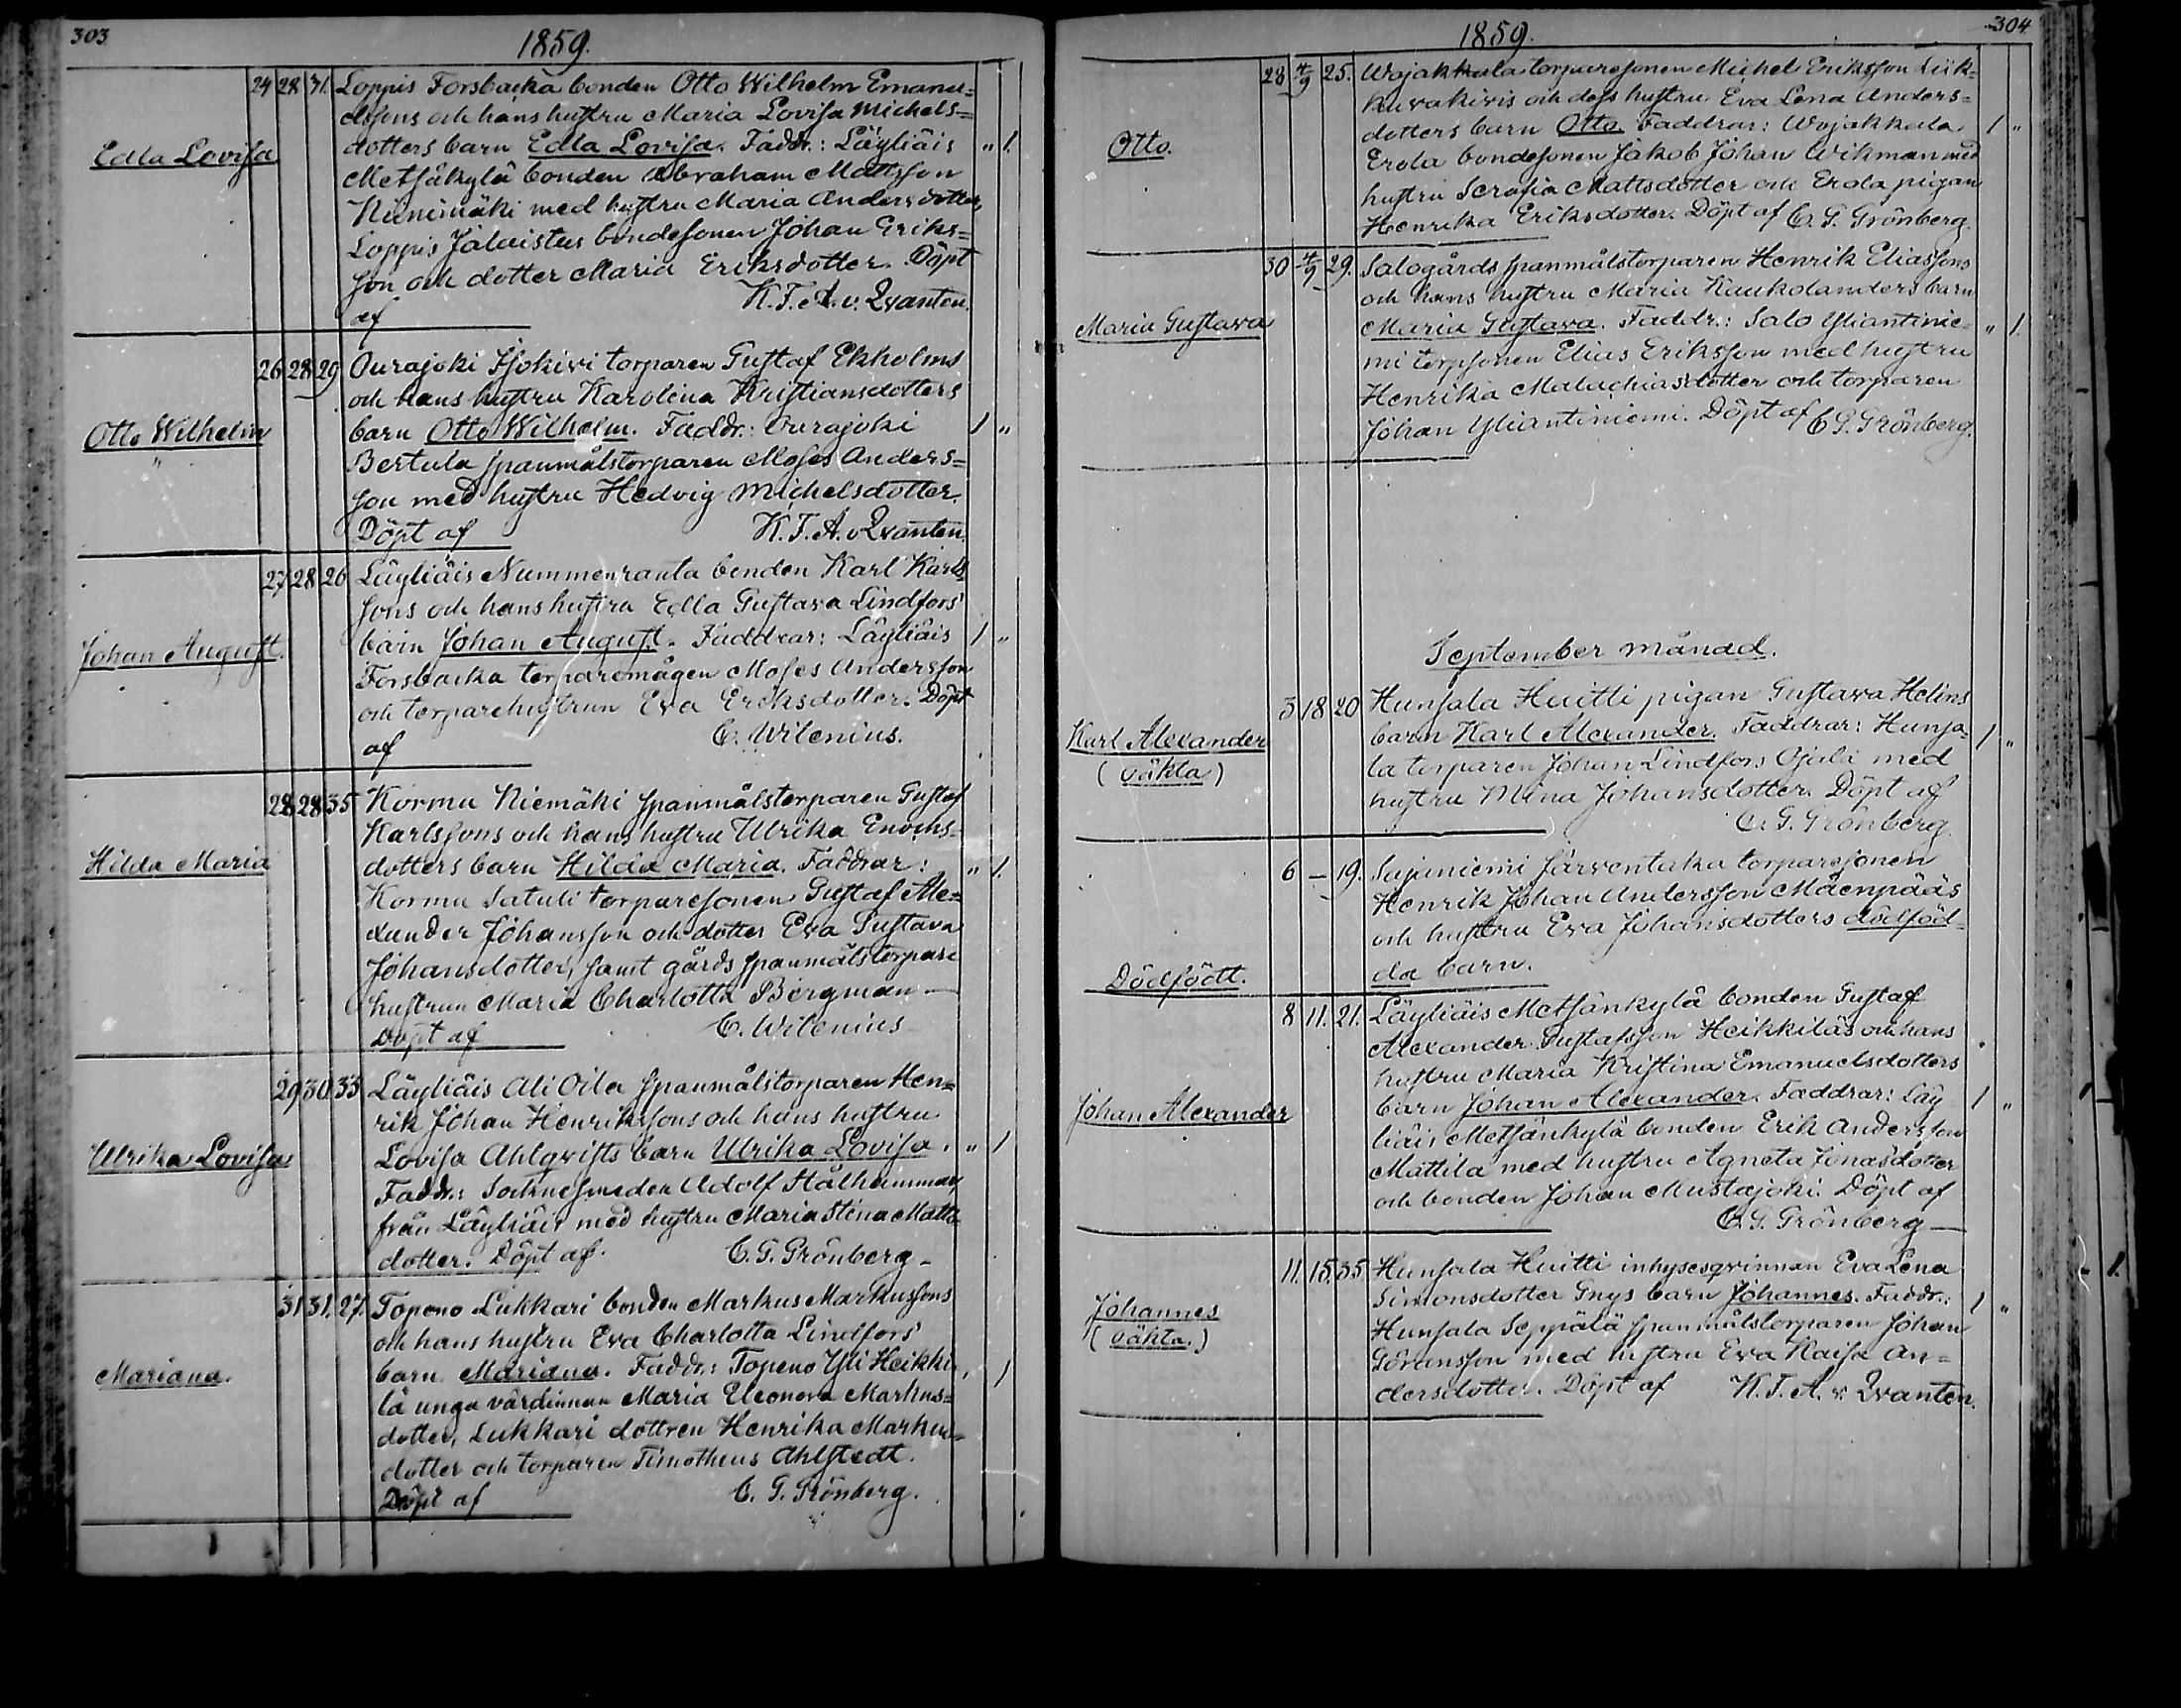 303
1859.
24 28 31. Loppis Forsbacka bonden Otto Wilhelm Emanu=
elssons och hans hustru Maria Lovisa Michels=
Edla Lovisa dotters barn Edla Lovisa. Faddr.: Läyliäis " 1.
Metsäkylä bonden Abraham Mattsson
Niinimäki med hustru Maria Andersdotter,
Loppis Jalaistus bondesonen Johan Eriks=
son och dotter Maria Eriksdotter. Döpt
af K. F. A. v. Qvanten.
26 28 29 Ourajoki Isokivi torparen Gustaf Ekholms
och hans hustru Karolina Kristiansdotters
Otto Wilhelm barn Otto Wilhelm. Faddr.: Ourajoki 1 "
Bertula spanmålstorparen Moses Anders=
son med hustru Hedvig Michelsdotter.
Döpt af K. F. A. v Qvanten.
27 28 26 Läyliäis Nummenranta bonden Karl Karls
sons och hans hustru Edla Gustava Lindfors'
Johan August. barn Johan August. Faddrar: Läyliäis 1 "
Forsbacka torparemågen Moses Andersson
och torparehustrun Eva Eriksdotter. Döpt
af C. Wilenius.
28 28 35 Kormu Niemäki spanmålstorparen Gustaf
Karlssons och hans hustru Ulrika Enochs=
Hilda Maria dotters barn Hilda Maria. Faddrar: " 1.
Kormu Satuli torparesonen Gustaf Ale=
xander Johansson och dotter Eva Gustava
Johansdotter, samt gårds spanmålstorpare
hustrun Maria Charlotta Bergman —
Döpt af C. Wilenius
29 30 33 Läyliäis Ali Oila spanmålstorparen Hen=
rik Johan Henrikssons och hans hustru
Ulrika Lovisa Lovisa Ahlqvists barn Ulrika Lovisa. " 1
Faddr.: Sockne smeden Adolf Stålhammar,
från Läyliäis med hustru Maria Stina Matts
dotter. Döpt af. C. G. Grönberg —
31 31. 27. Topeno Lukkari bonden Markus Markussons
och hans hustru Eva Charlotta Lindfors'
Mariana. barn Mariana. Faddr.: Topeno Yli Heikki " 1
lä unga värdinnan Maria Eleonora Markus=
dotter, Lukkari dottren Henrika Markus=
dotter och torparen Timotheus Ahlstedt.
Döpt af C. G. Grönberg.
304
1859.
28 4/9 25. Wojakkala torparesonen Michel Eriksson Liik=
kuvakivis och dess hustru Eva Lena Anders=
Otto. dotters barn Otto. Faddrar: Wojakkala 1 "
Erola bondesonen Jakob Johan Wikman med
hustru Serafia Mattsdotter och Erola pigan
Henrika Eriksdotter. Döpt af C. G. Grönberg.
30 4/9 29. Salogårds spanmålstorparen Henrik Eliassons
och hans hustru Maria Kaukolanders barn
Maria Gustava Maria Gustava. Faddr.: Salo Yliantinie= " 1.
mi torpsonen Elias Eriksson med hustru
Henrika Malachiasdotter och torparen
Johan Yliantiniemi. Döpt af C G. Grönberg.
September månad.
3 18 20 Hunsala Huitti pigan Gustava Helins
Karl Alexander barn Karl Alexander. Faddrar: Hunsa= 1 "
(oäkta) la torparen Johan Lindfors Ojala med
hustru Mina Johansdotter. Döpt af
C. G. Grönberg.
6 — 19. Sajaniemi Järventaka torparesonen
Henrik Johan Andersson Mäenpääs
och hustru Eva Johansdotters dödföd=
Dödfödt. da barn.
8 11. 21. Läyliäis Metsänkylä bonden Gustaf
Alexander Gustafsson Heikkiläs och hans
hustru Maria Kristina Emanuelsdotters
Johan Alexander barn Johan Alexander. Faddrar: Läy 1 "
liäis Metsänkylä bonden Erik Andersson
Mattila med hustru Agneta Jonasdotter
och bonden Johan Mustajoki. Döpt af
C. G. Grönberg —
11. 15. 35 Hunsala Huitti inhysesqvinnan Eva Lena
Johannes Simonsdotter Gnys barn Johannes. Faddr.: 1 "
(oäkta.) Hunsala Seppälä spanmålstorparen Johan
Göransson med hustru Eva Kaisa An=
dersdotter. Döpt af K. F. A. v. Qvanten.